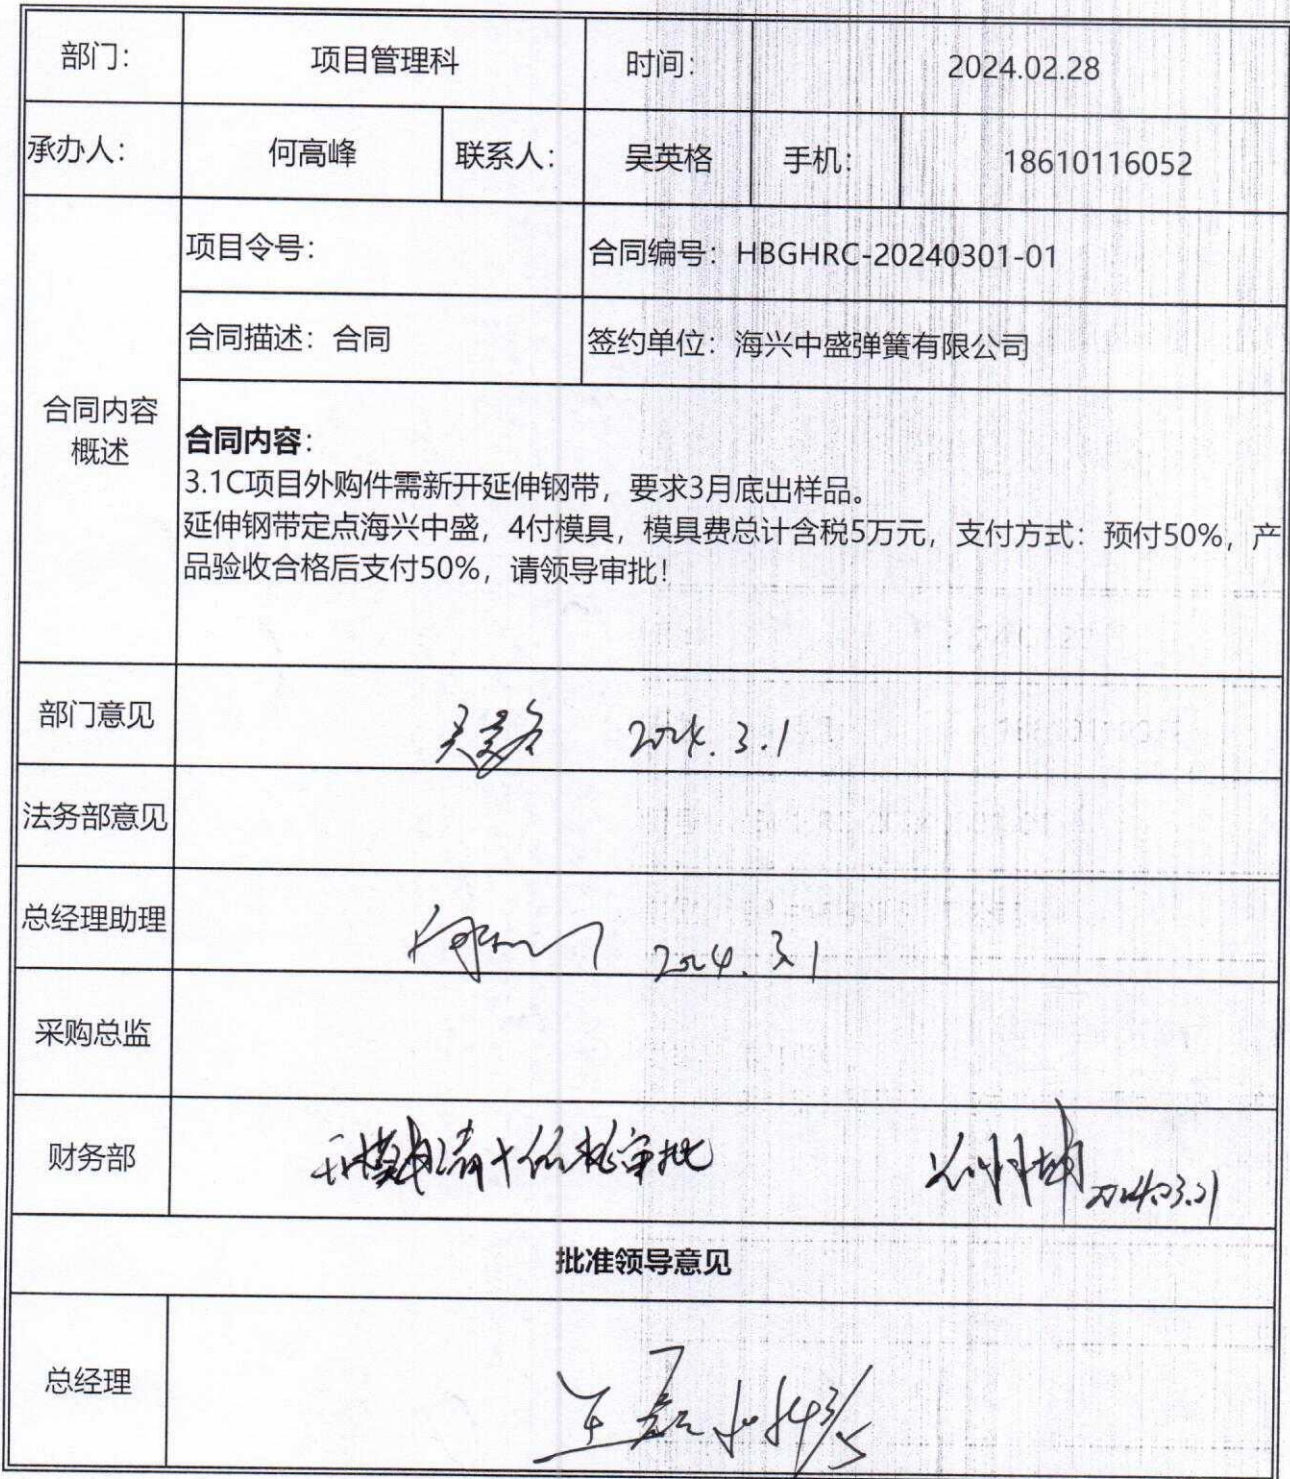 部门： 项目管理科 时间： 2024.02.28
承办人： 何高峰 联系人： 吴英格 手机： 18610116052
合同内容概述
项目令号： 合同编号：HBGHRC-20240301-01
合同描述：合同 签约单位：海兴中盛弹簧有限公司
合同内容：
3.1C项目外购件需新开延伸钢带，要求3月底出样品。
延伸钢带定点海兴中盛，4付模具，模具费总计含税5万元，支付方式：预付50%，产
品验收合格后支付50%，请领导审批！
部门意见 吴英格 2024.3.1
法务部意见
总经理助理 2024.3.1
采购总监
财务部 审批 2024.03.01
批准领导意见
总经理 王磊